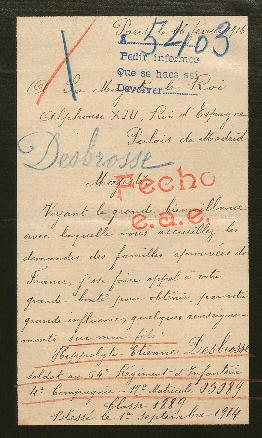 Paris le 16 février 1916
A 5403
Pedir informes
Que se haga saber
Devolver
A Sa Majesté le Roi
Alphonse XIII, Roi d'Espagne
Palais de Madrid
Desbrosse
Majesté
Fecho
e.a.e.
Voyant la grande bienveillance
avec laquelle vous accueillez les
demandes des familles éprouvées de
France, j'ose faire appel à votre
grande bonté pour obtenir, par votre
grande influence, quelques renseigne-
ments sur mon fils
Hippolyte Etienne Desbrosse
soldat au 54e Régiment d'Infanterie
4e Compagnie - No Matricule
Classe
Blessé le 1er Septembre - 1914